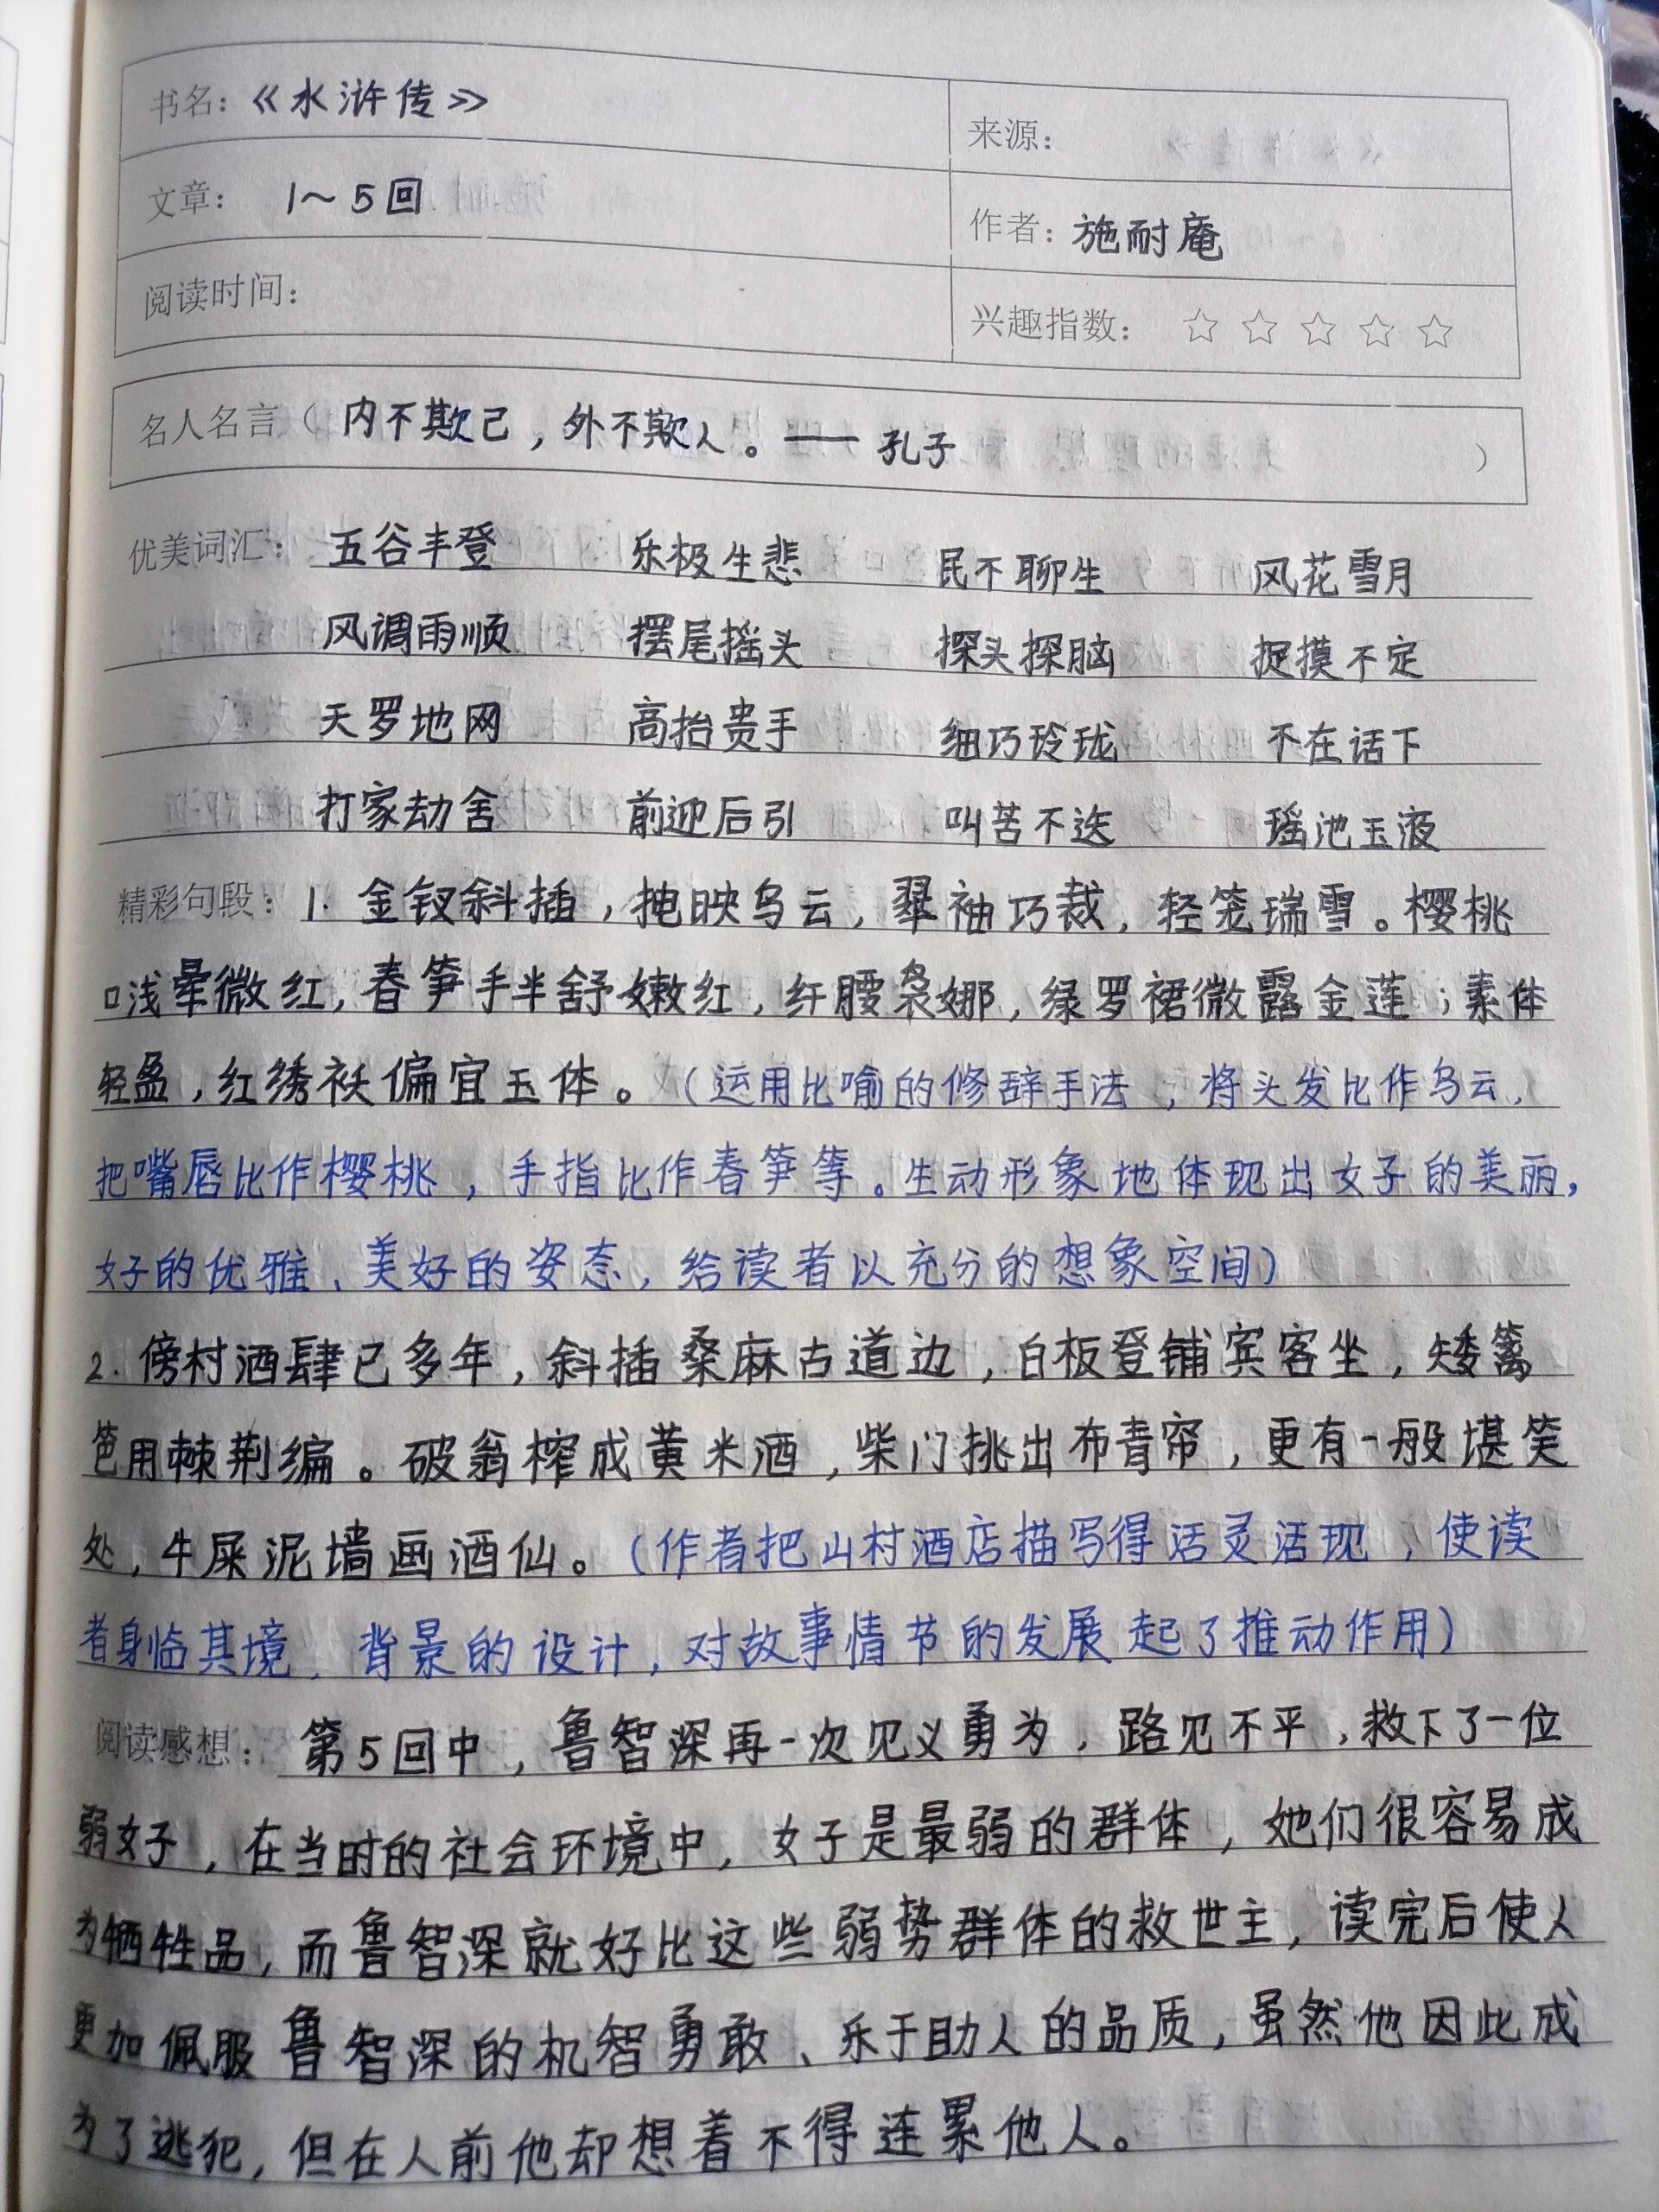 书名：《水浒传》
来源：
文章： 1～5回
作者：施耐庵
阅读时间：
兴趣指数：☆☆☆☆☆
名人名言（内不欺己，外不欺人。——孔子）
优美词汇：五谷丰登 乐极生悲 民不聊生 风花雪月
风调雨顺 摆尾摇头 探头探脑 捉摸不定
天罗地网 高抬贵手 细巧玲珑 不在话下
打家劫舍 前迎后引 叫苦不迭 瑶池玉液
精彩句段：1. 金钗斜插，掩映乌云，翠袖巧裁，轻笼瑞雪。樱桃
口浅晕微红，春笋手半舒嫩红，纤腰袅娜，绿罗裙微露金莲；素体
轻盈，红绣袄偏宜玉体。（运用比喻的修辞手法，将头发比作乌云，
把嘴唇比作樱桃，手指比作春笋等。生动形象地体现出女子的美丽，
好的优雅、美好的姿态，给读者以充分的想象空间）
2. 傍村酒肆已多年，斜插桑麻古道边，白板登铺宾客坐，矮篱
笆用棘荆编。破翁榨成黄米酒，柴门挑出布青帘，更有一般堪笑
处，牛屎泥墙画酒仙。（作者把山村酒店描写得活灵活现，使读
者身临其境，背景的设计，对故事情节的发展起了推动作用）
阅读感想：第5回中，鲁智深再一次见义勇为，路见不平，救下了一位
弱女子，在当时的社会环境中，女子是最弱的群体，她们很容易成
为牺牲品，而鲁智深就好比这些弱势群体的救世主，读完后使人
更加佩服鲁智深的机智勇敢、乐于助人的品质，虽然他因此成
为了逃犯，但在人前他却想着不得连累他人。